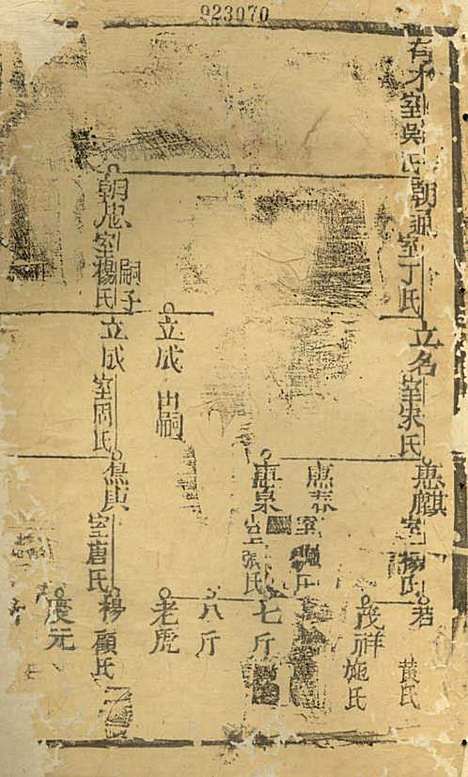 923070
有才室吳氏
朝珮室丁氏
朝忠室楊氏
嗣子
立名室宋氏
立成 出嗣
立成室周氏
惠麒室楊氏
惠春室
惠泉室張氏
室唐氏
若 黃氏
茂祥 施氏
七斤
八斤
老虎
楊 顧氏
慶元